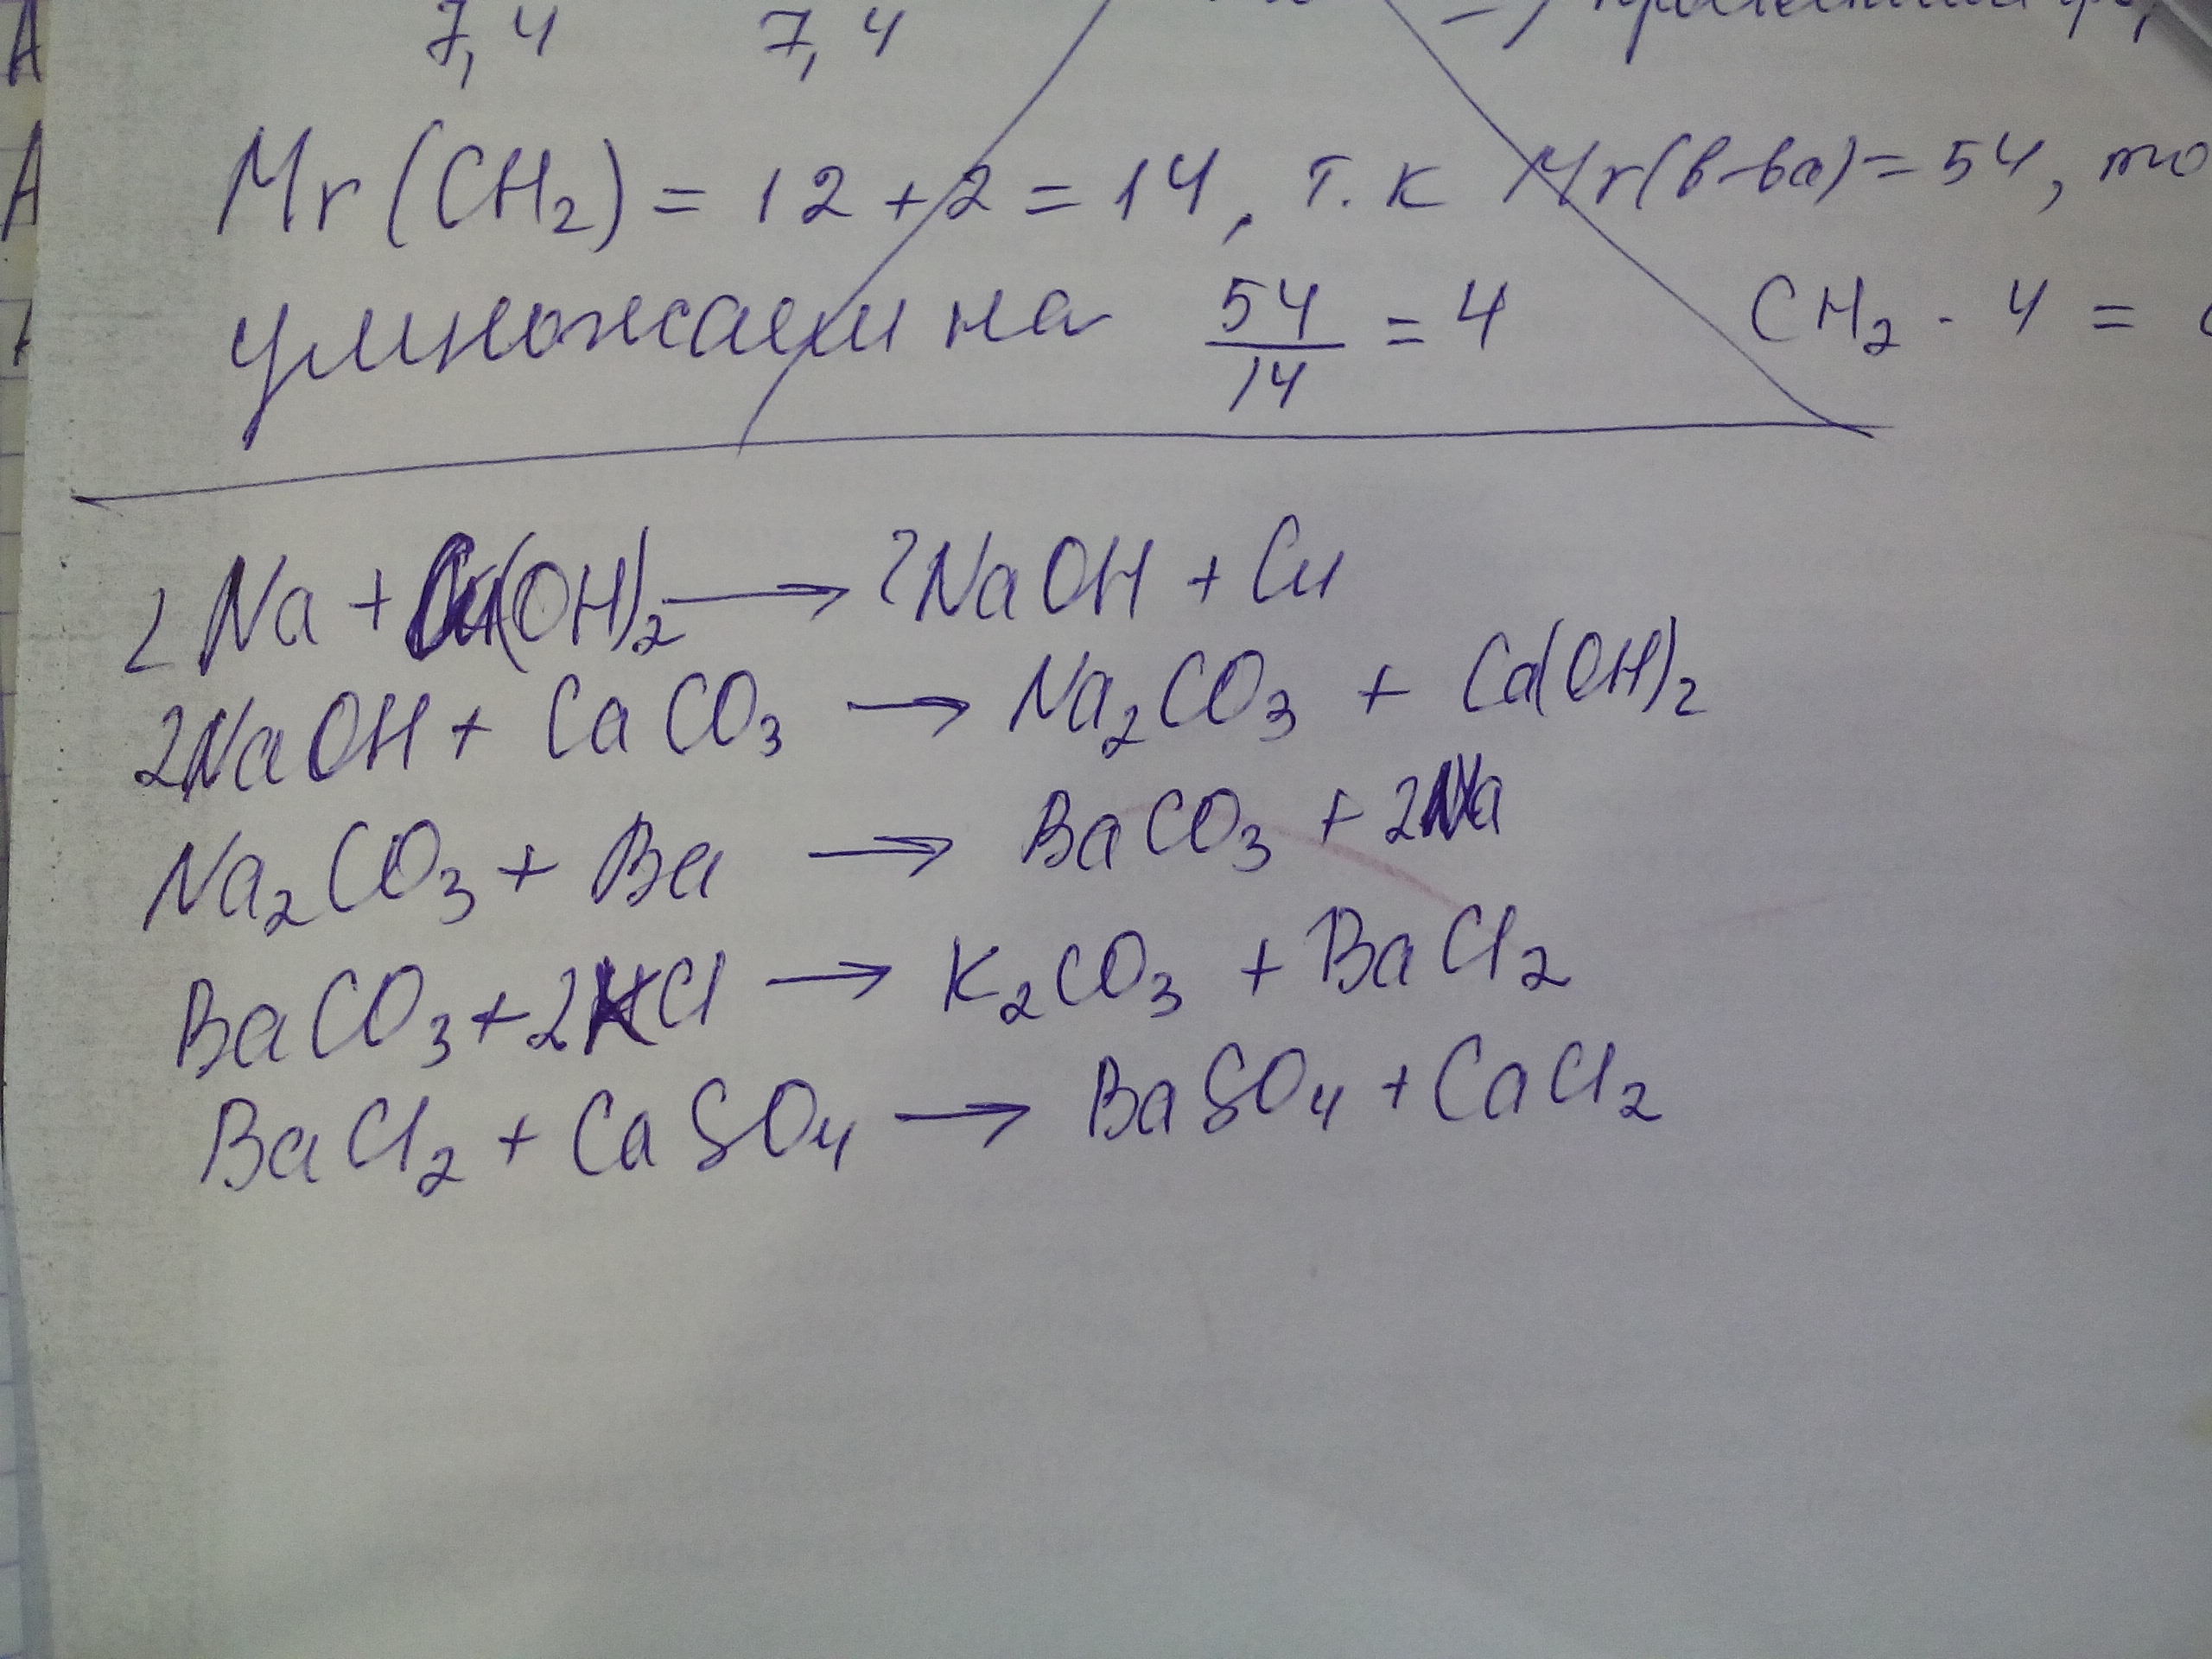 7,4 7,4
Mr(CH₂) = 12 + 2 = 14, т.к Mr(в-ва) = 54, то
умножаем на 54/14 = 4 CH₂ · 4 =
2Na + Cu(OH)₂ → 2NaOH + Cu
2NaOH + CaCO₃ → Na₂CO₃ + Ca(OH)₂
Na₂CO₃ + Ba → BaCO₃ + 2Na
BaCO₃ + 2KCl → K₂CO₃ + BaCl₂
BaCl₂ + CaSO₄ → BaSO₄ + CaCl₂